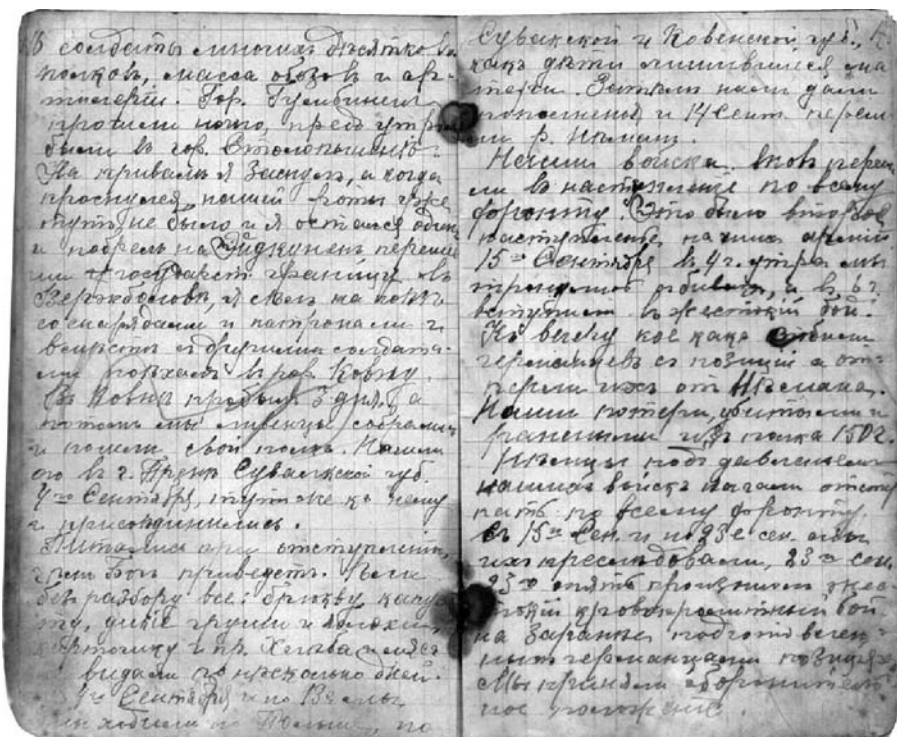 16 солдаты многихъ десятковъ
полковъ, масса обозовъ и ар-
тилерiи. Гор. Гумбиненъ
прошли ночю, предъ утромъ
были въ гор. Столопененъ.
На привалѣ я заснулъ, а когда
проснулся, нашей роты уже
тутъ не было и я остался одинъ
и побрелъ на Эйдкуненъ переш
ли государст. границу въ
Вержболовѣ, я селъ на поѣздъ
со снарядами и патронами и
вмѣстѣ съ другими солдата-
ми поѣхалъ въ гор. Ковну.
Въ Ковнѣ пробылъ 3 дня, а
потомъ мы ливенцы собрались
и пошли свой полкъ. Нашли
его въ г. Прены Сувалкской губ.
4го Сентября, тутъ же къ нему
и присоединились.
Питались при отступленiи,
чѣмъ Богъ приведетъ. Ели
безъ разбору все: брюкву, капус
ту, дикiе груши и яблоки,
картошку и пр. Хлѣба и мяса
видали по несколько дней.
Сентября и по 13е мы
ходили по Польше, по
Сувалкской и Ковенской губ.,
какъ дѣти лишившiеся ма
тери. Затѣмъ намъ дали
пополненiе и 14 Сент. переш
ли р. Неманъ.
Наши войска вновь переш
ли въ наступленiе по всему
фронту. Это было второе
наступленiе нашихъ армiй
15го Сентября въ 4 ч. утра мы
тронулись, а въ 6 ч
вступили въ жестокiй бой.
Къ вечеру кое какъ отбили
германцевъ съ позицiй а от-
перли ихъ отъ Нѣмана.
Наши потери, убитыми и
ранеными изъ полка 150 ч.
Нѣмцы подъ давленiемъ
нашихъ войскъ начали отсту
пать по всему фронту.
Съ 15го Сен. и по 23е сен. мы
ихъ преследовали, 23го сен
23го опять произошелъ жес
токiй кровопролитный бой
на заранѣе подготовлен-
ныхъ германцами позицiяхъ
Мы приняли оборонитель
ное положенiе.